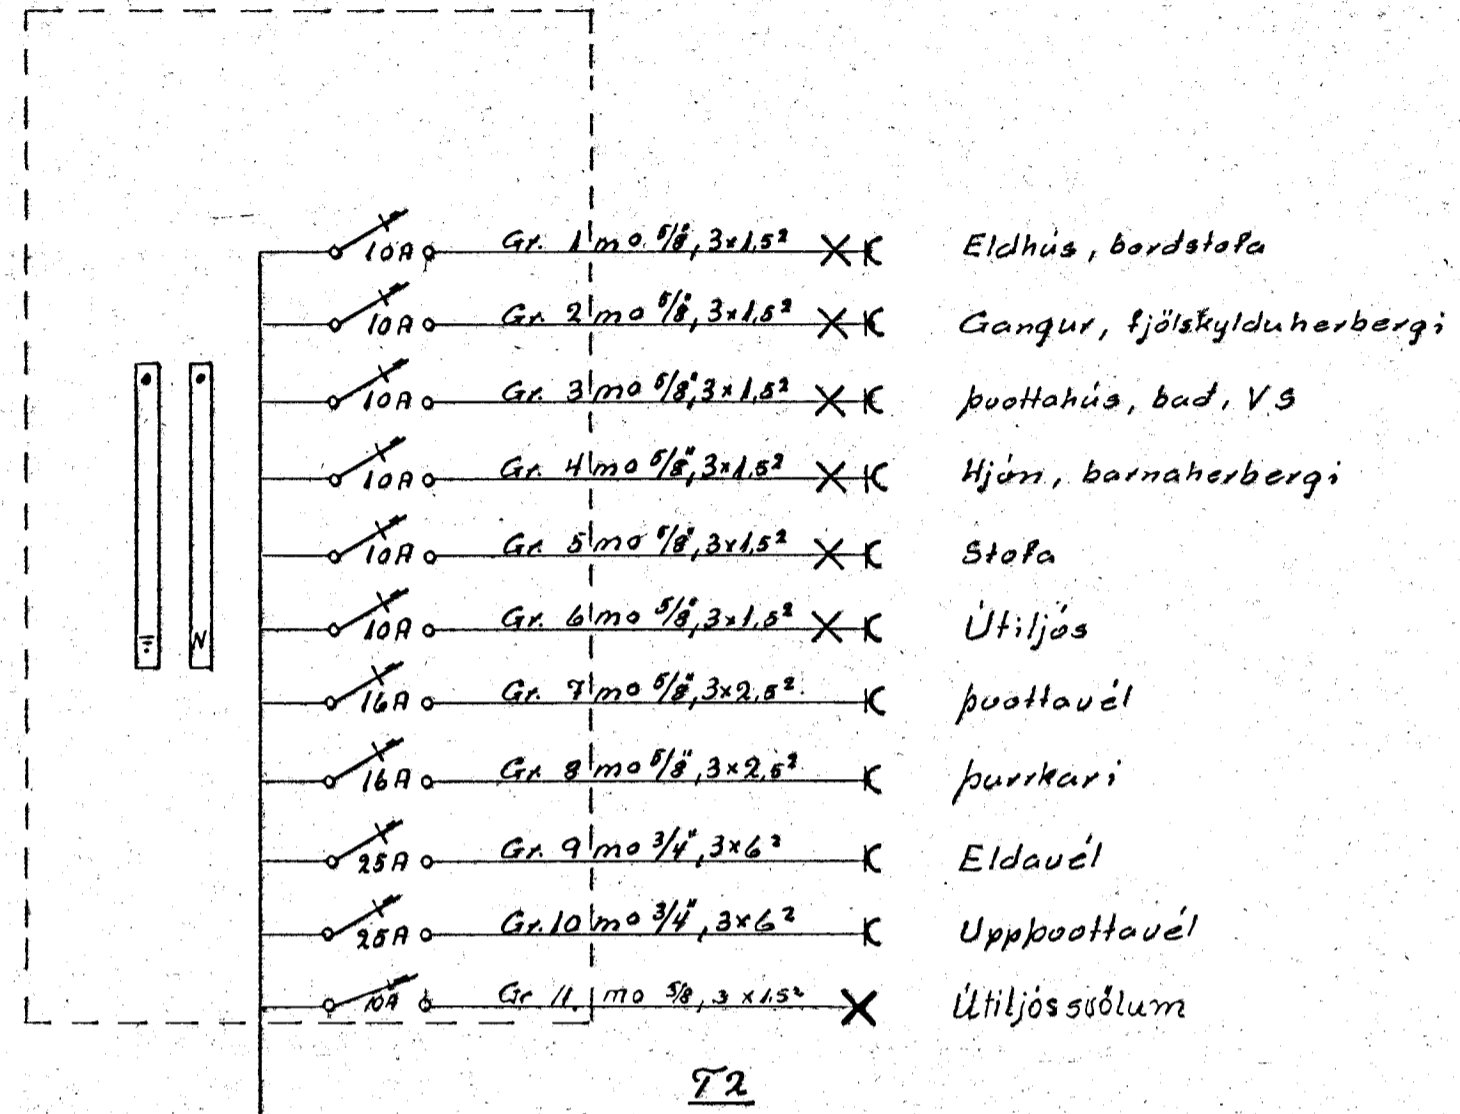 10A Gr. 1 mo 5/8", 3×1,5² Eldhús, bordstofa
10A Gr. 2 mo 5/8", 3×1,5² Gangur, fjölskylduherbergi
10A Gr. 3 mo 5/8", 3×1,5² þvottahús, bað, VS
10A Gr. 4 mo 5/8", 3×1,5² Hjón, barnaherbergi
10A Gr. 5 mo 5/8", 3×1,5² Stofa
10A Gr. 6 mo 5/8", 3×1,5² Útiljós
N
16A Gr. 7 mo 5/8", 3×2,5² þvottavél
16A Gr. 8 mo 5/8", 3×2,5² þurrkari
25A Gr. 9 mo 3/4", 3×6² Eldavél
25A Gr. 10 mo 3/4", 3×6² Uppþvottavél
10A Gr 11. mo 5/8, 3×1.5² Útiljós svölum
T2